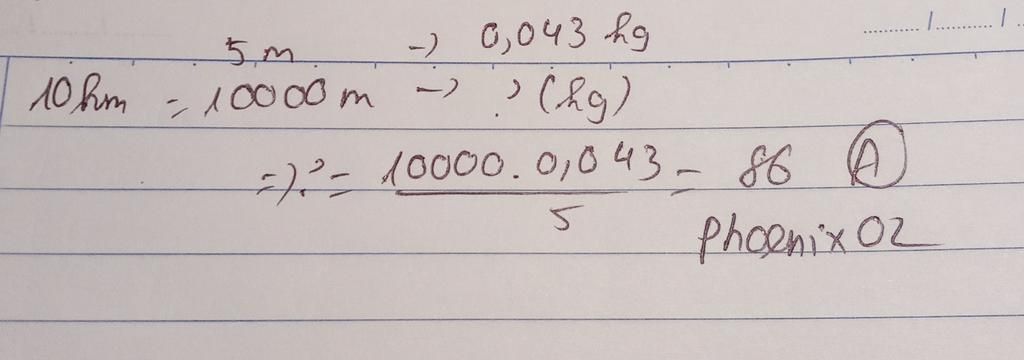 5 m → 0,043 kg
10km = 10000 m → ? (kg)
=> ? = 10000. 0,043 / 5 = 86 A
Phoenix02